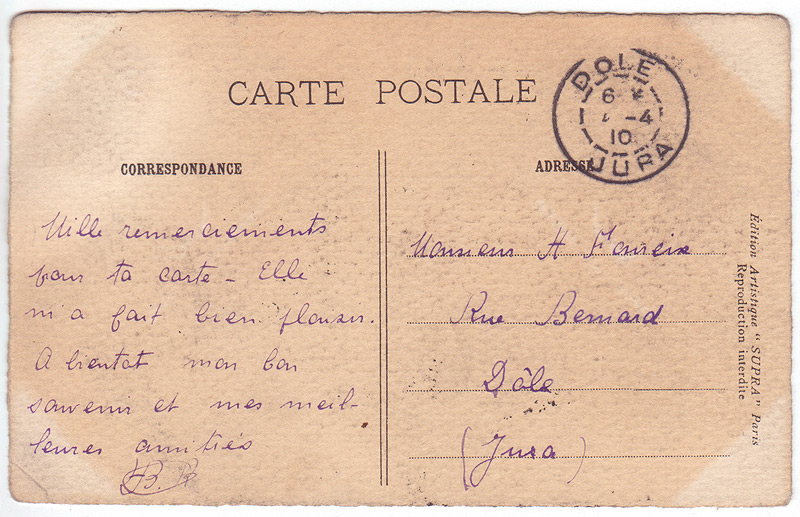 CARTE POSTALE
DOLE
6
-4
10
JURA
CORRESPONDANCE
ADRESSE
Mille remerciements
pour ta carte - Elle
m'a fait bien plaisir.
A bientot mon bon
souvenir et mes meil-
leures amitiés
Monsieur H
Rue Bernard
Dôle
(Jura)
Édition Artistique "SUPRA" Paris
Reproduction interdite